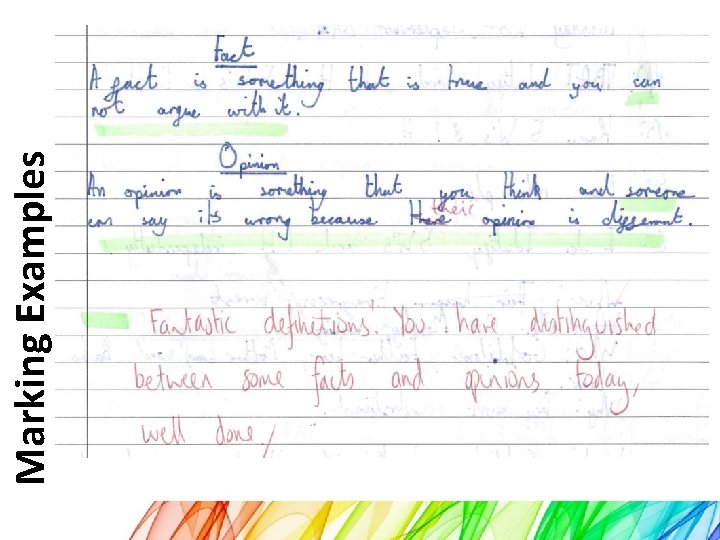 Marking Examples
Fact
A fact is something that is true and you can
not argue with it.
Opinion
An opinion is something that you think and someone
can say its wrong because there opinion is different.
their
Fantastic definitions. You have distinguished
between some facts and opinions today,
well done,